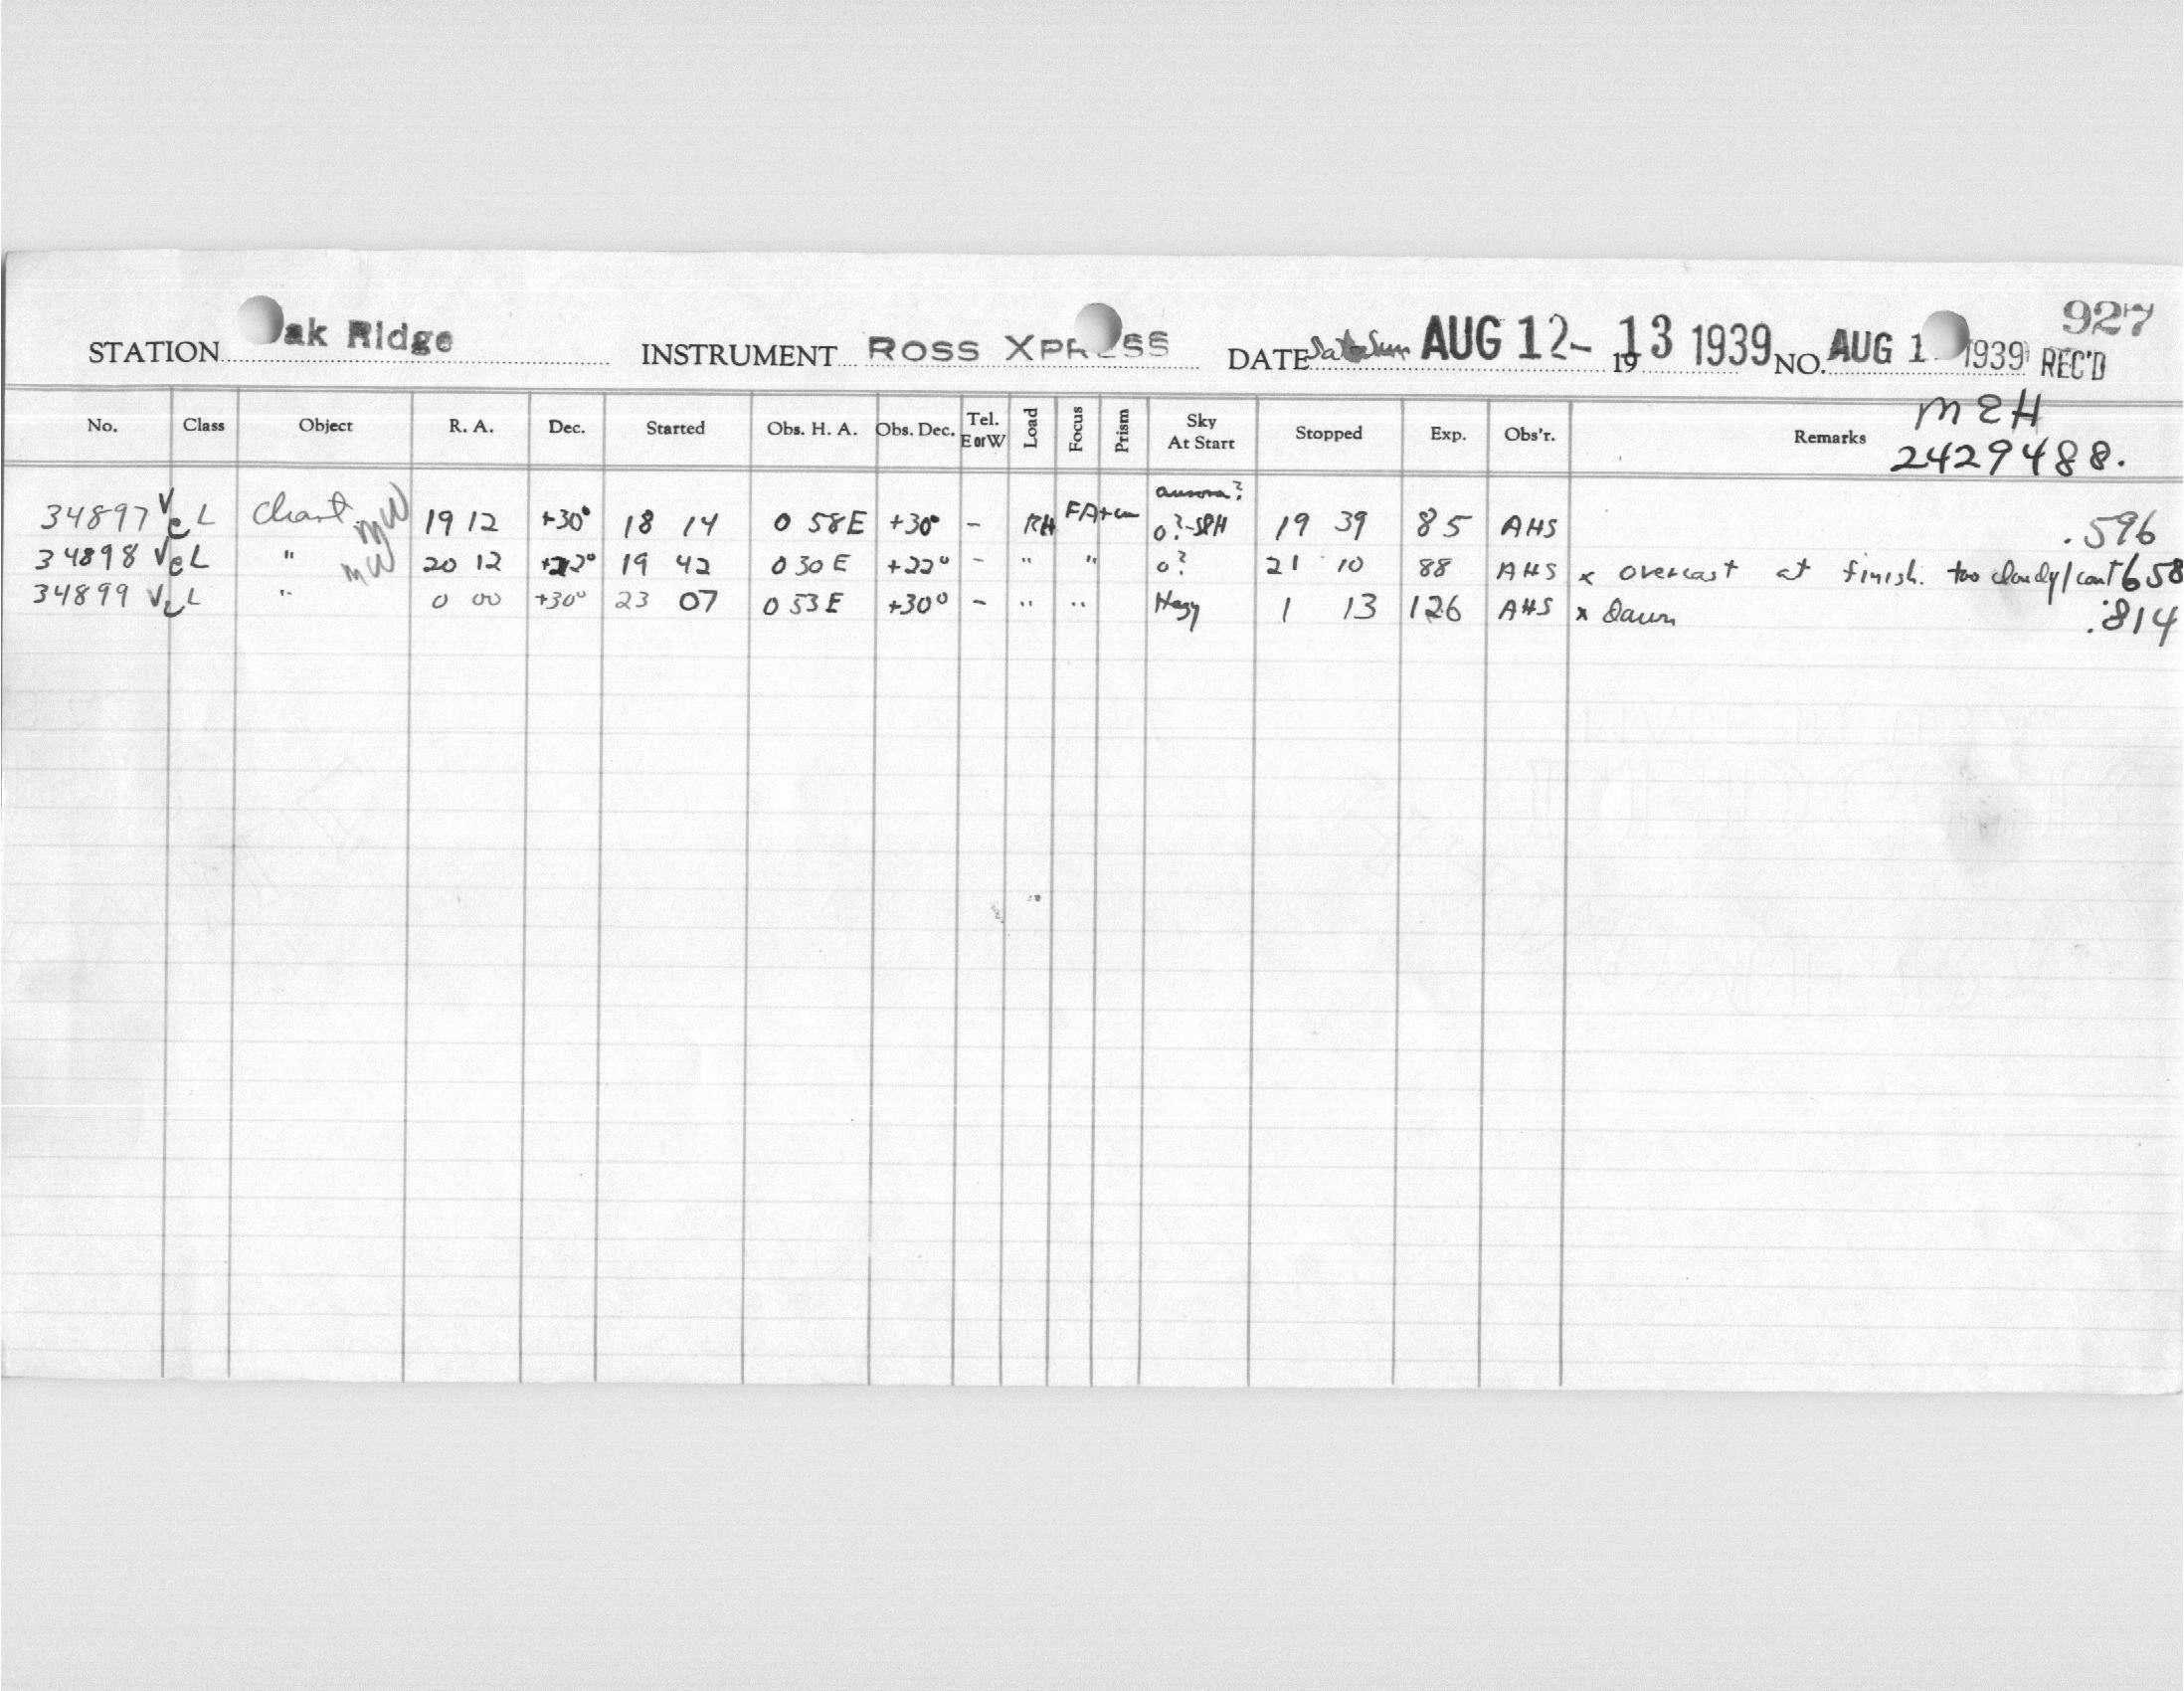 927
STATION ak Ridge INSTRUMENT ROSS XPR SS DATE AUG 12- 13 1939 19 NO. AUG 1 1939 REC'D
No. Class Object R. A. Dec. Started Obs. H. A. Obs. Dec. Tel. E or W Load Focus Prism Sky At Start Stopped Exp. Obs'r. Remarks MEH
2429488.
aurora?
34897 VeL Chart MW 19 12 +30° 18 14 0 58E +30° - RH FA+ 0?-SPH 19 39 85 AHS .596
34898 VeL " MW 20 12 +22° 19 42 0 30 E +22° - " " 0? 21 10 88 AHS x overcast at finish. too cloudy/cont 658
34899 VeL " 0 00 +30° 23 07 0 53 E +30° - " " Hazy 1 13 126 AHS x Dawn .814